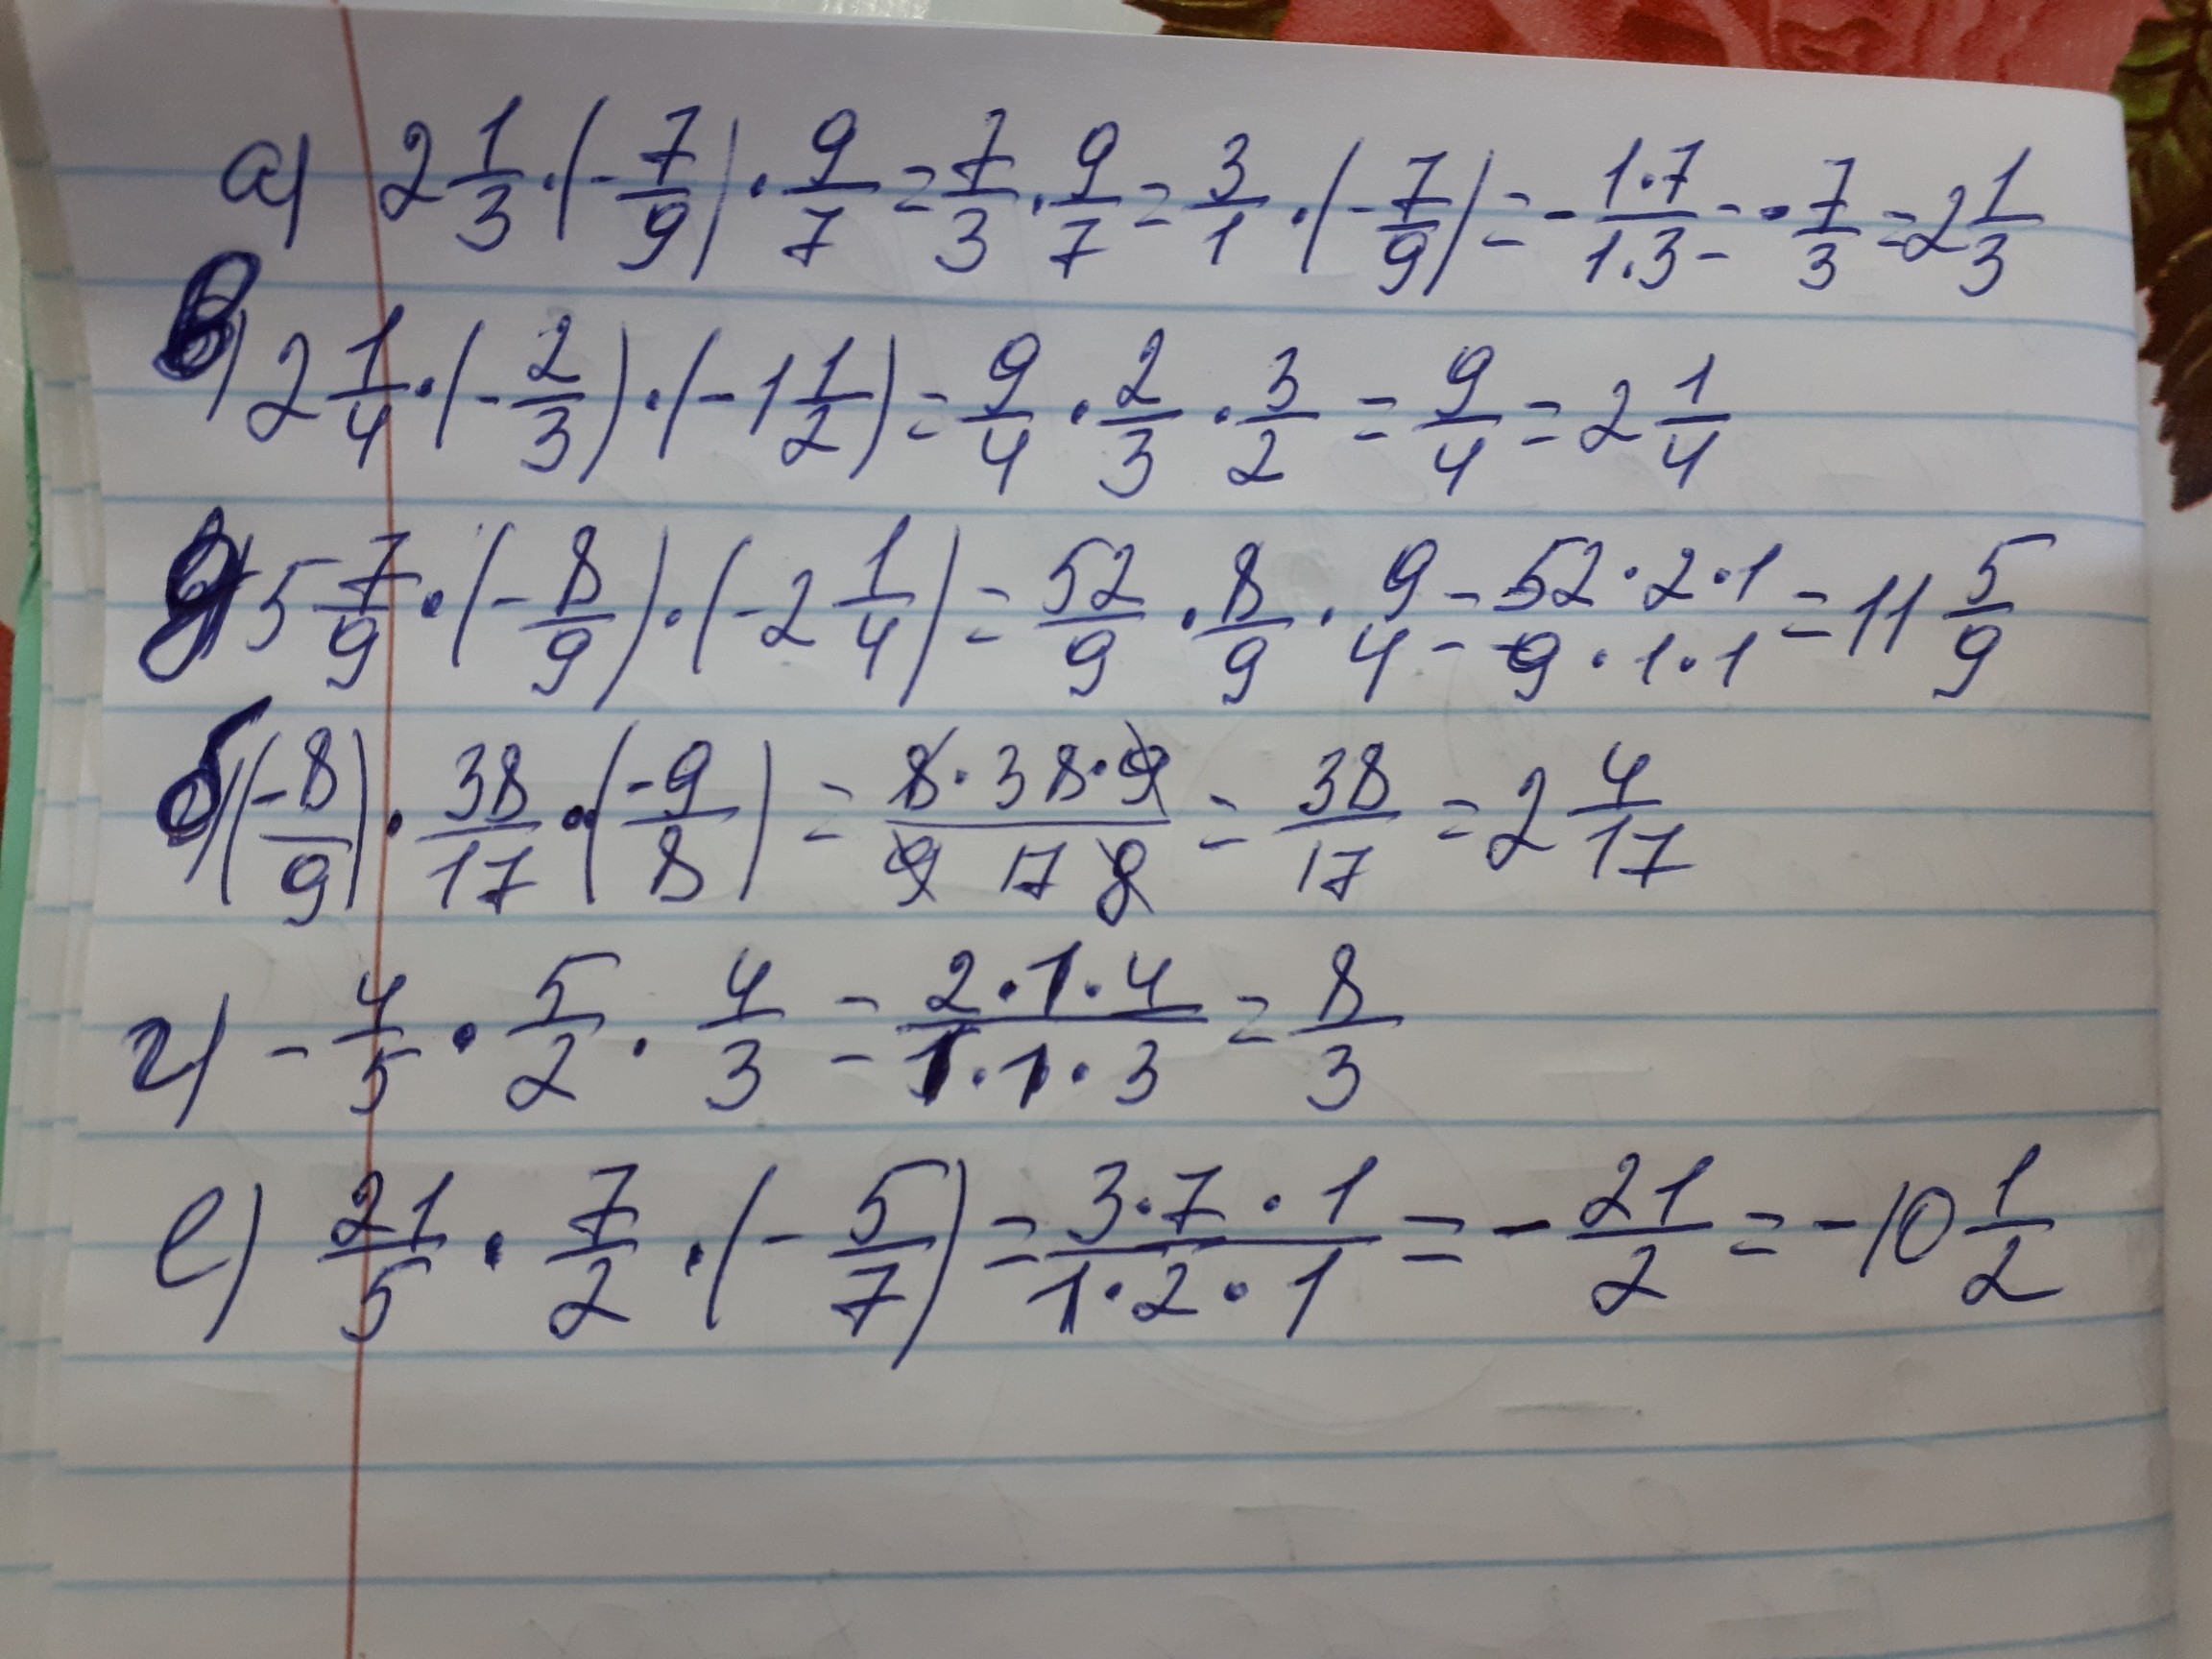 а) 2 1/3 · (- 7/9) · 9/7 = 7/3 · 9/7 = 3/1 · (- 7/9) = - 1·7/1·3 = - 7/3 = 2 1/3
в) 2 1/4 · (- 2/3) · (- 1 1/2) = 9/4 · 2/3 · 3/2 = 9/4 = 2 1/4
д) 5 7/9 · (- 8/9) · (- 2 1/4) = 52/9 · 8/9 · 9/4 = 52·2·1/9·1·1 = 11 5/9
б) (-8/9) · 38/17 · (-9/8) = 8·38·9/9 17 8 = 38/17 = 2 4/17
г) - 4/5 · 5/2 · 4/3 = 2·1·4/1·1·3 = 8/3
е) 21/5 · 7/2 · (- 5/7) = 3·7·1/1·2·1 = - 21/2 = -10 1/2